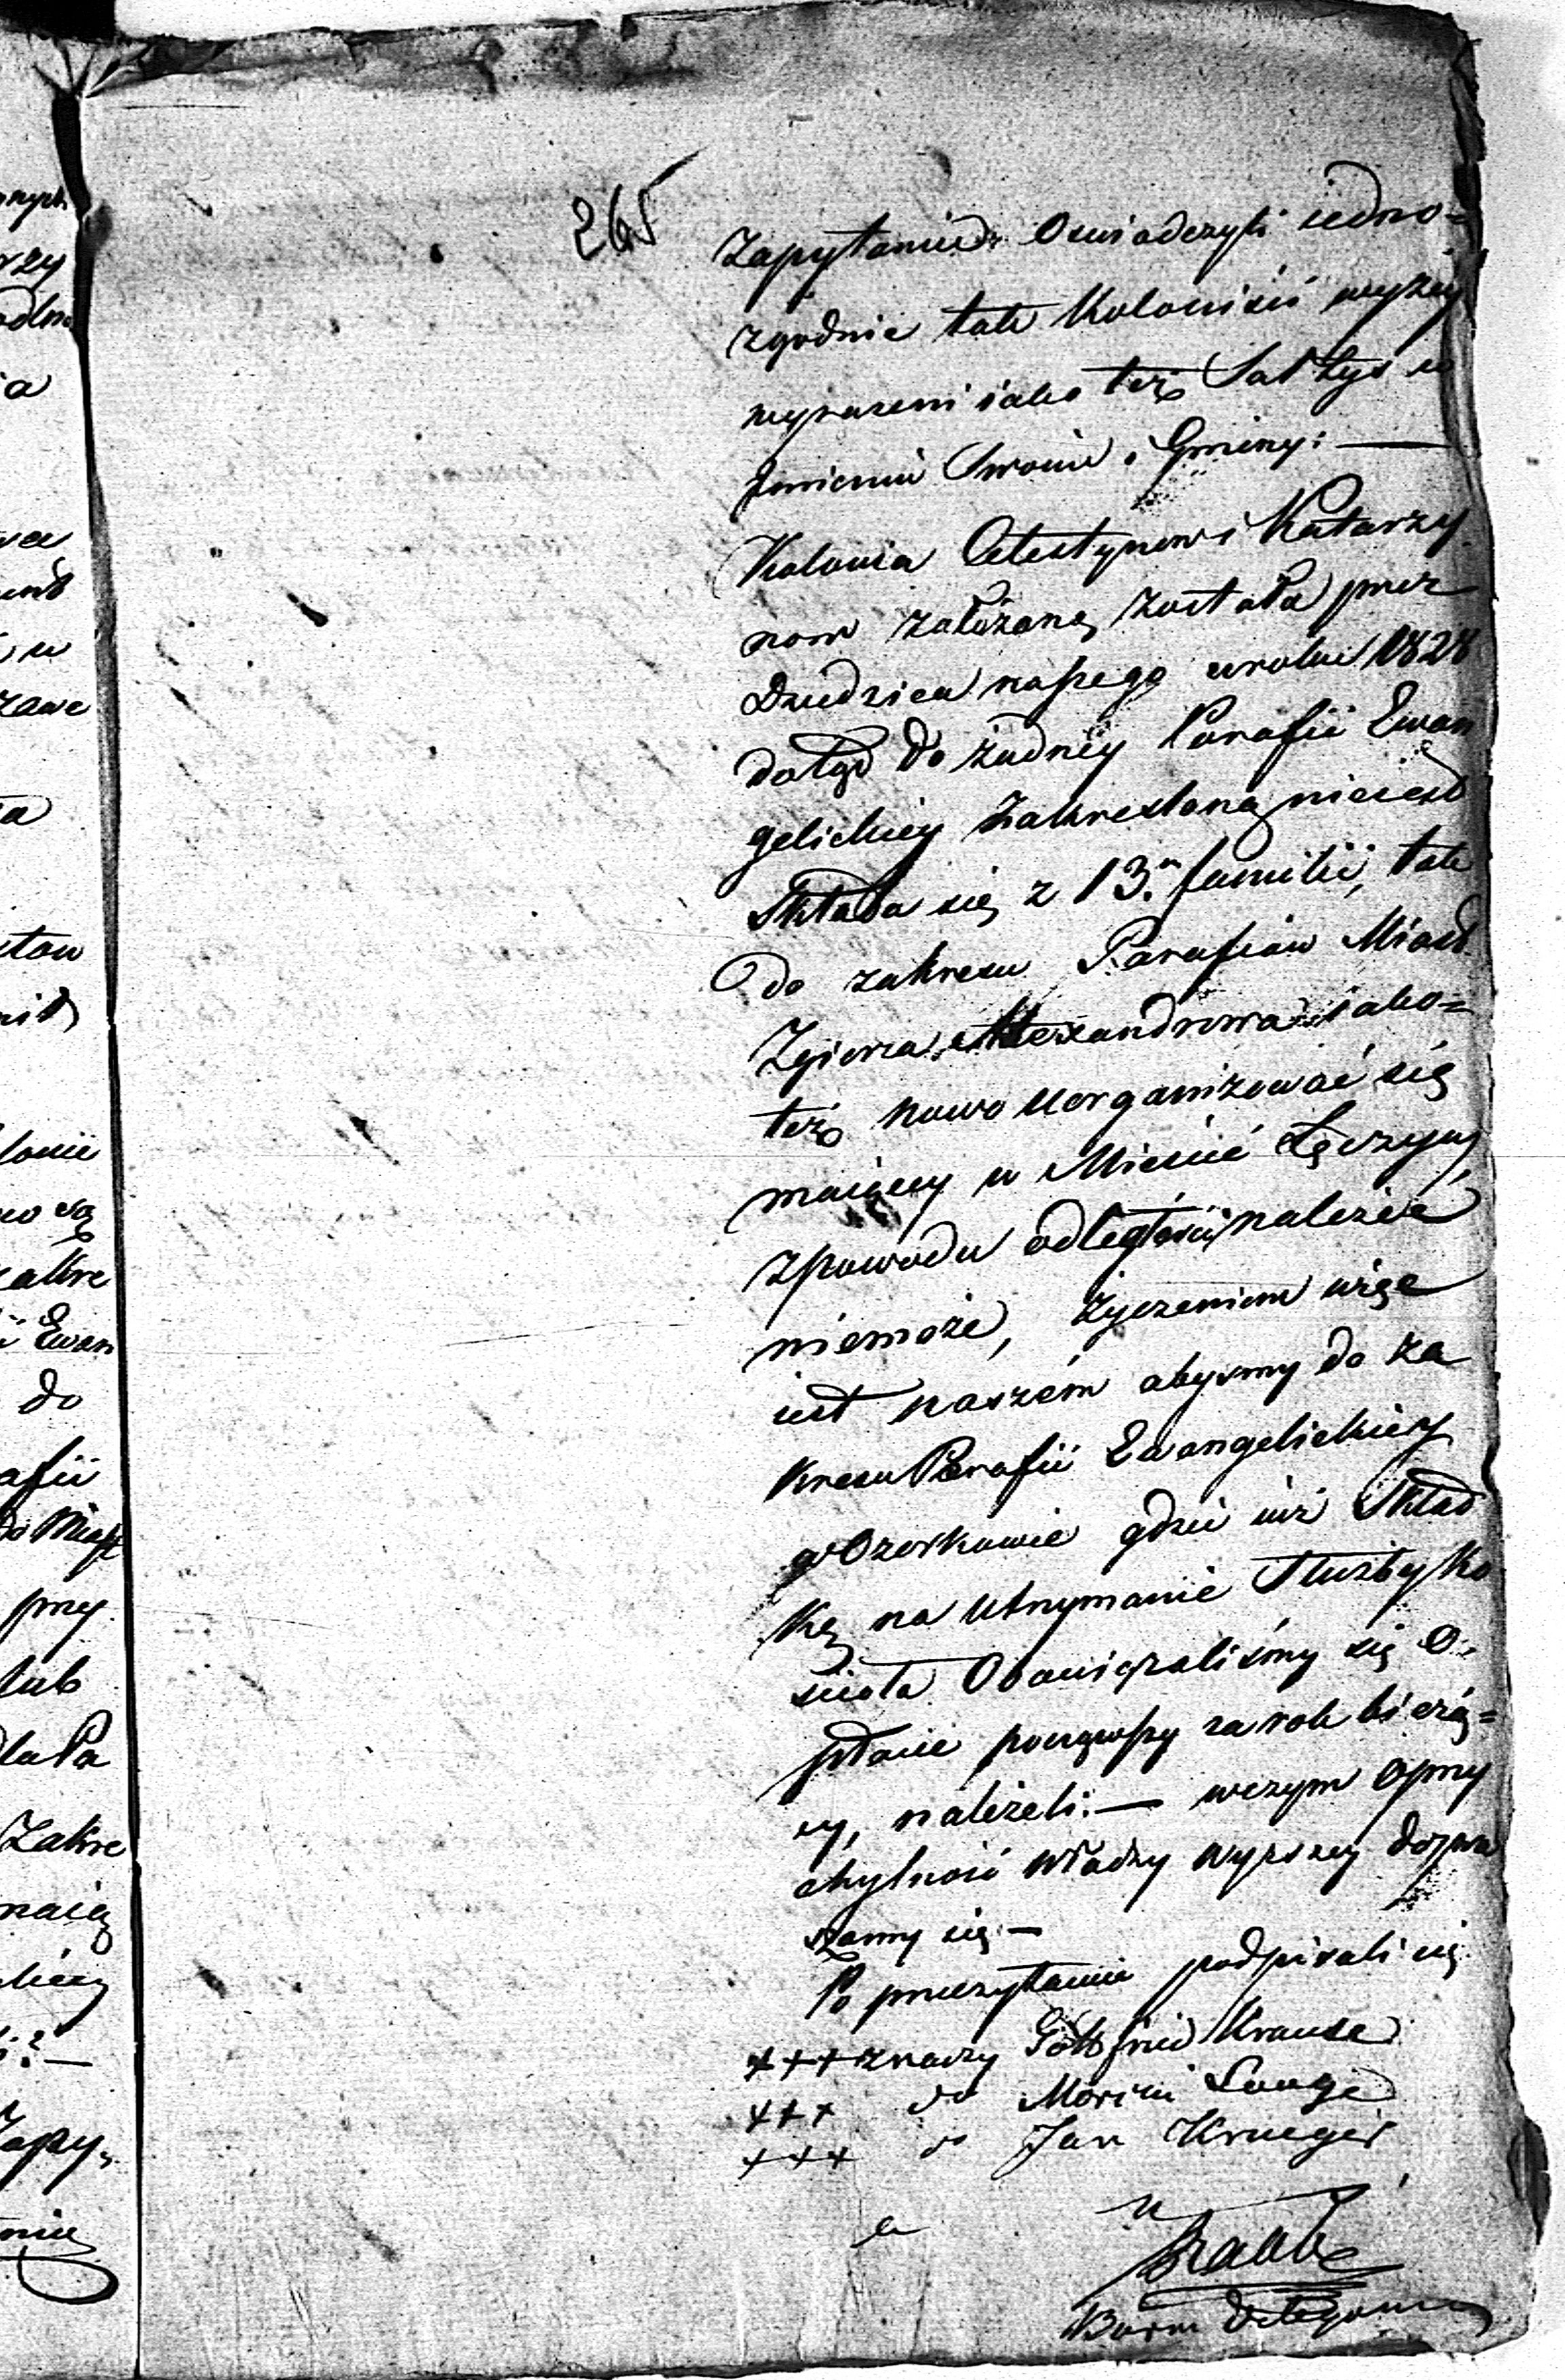 265
Zapytanie: Oswiadczyli iedno=
zgodnie tak Koloniści wyżej
wyrazeni iako też Sołtys w
Jmieniu Swoim i Gminy: —
Kolonia Celestynow i Katarzy
now założoną została przez
Dziedzica naszego w roku 1828
dotąd do żadney Parafii Ewan
gelickiey Zakresloną nieiest
Składa się z 13. familii, tak
do zakresu Parafiow Miast
Zgierza, Alexandrowa iako=
też nowo uorganizować się
maiącey w Mieście Łęczycy
zpowodu odległości należeć
niemoże, życzeniem więc
iest naszém abysmy do za
kresu Parafii Ewangelickiey
w Ozorkowie gdzie iuż Skład
kę na utrzymanie Służby Ko
scioła Obowięzaliśmy się O=
płacie począwszy za rok bieżą=
cy, należeli: — wczym O przy
chylność władzy wyższey dopra
szamy się —
Po przeczytaniu podpisali się
+++ znaczy Gottfried Krause
+++ do Marcin Lange
+++ do Jan Krueger
Burm Delegowany
ony
rzy
a
zawe
ta
nid
lonie
zakre
i Ewan
do
afii
do Miast
przy
lub
dla Pa
Zakre
maią
Zapy=